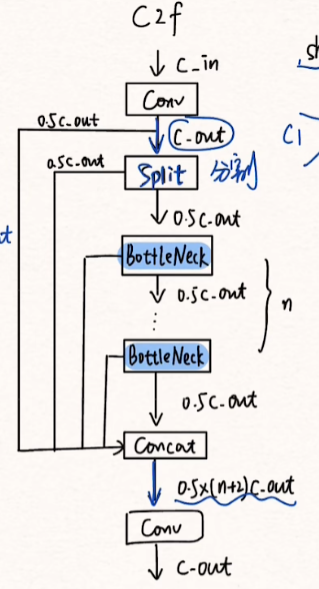 C2f
C_in
Conv
0.5C_out
C_out
0.5C_out
Split 分割
0.5C_out
BottleNeck
0.5C_out
n
BottleNeck
0.5C_out
Concat
0.5×(n+2)C_out
Conv
C_out
sh
C1